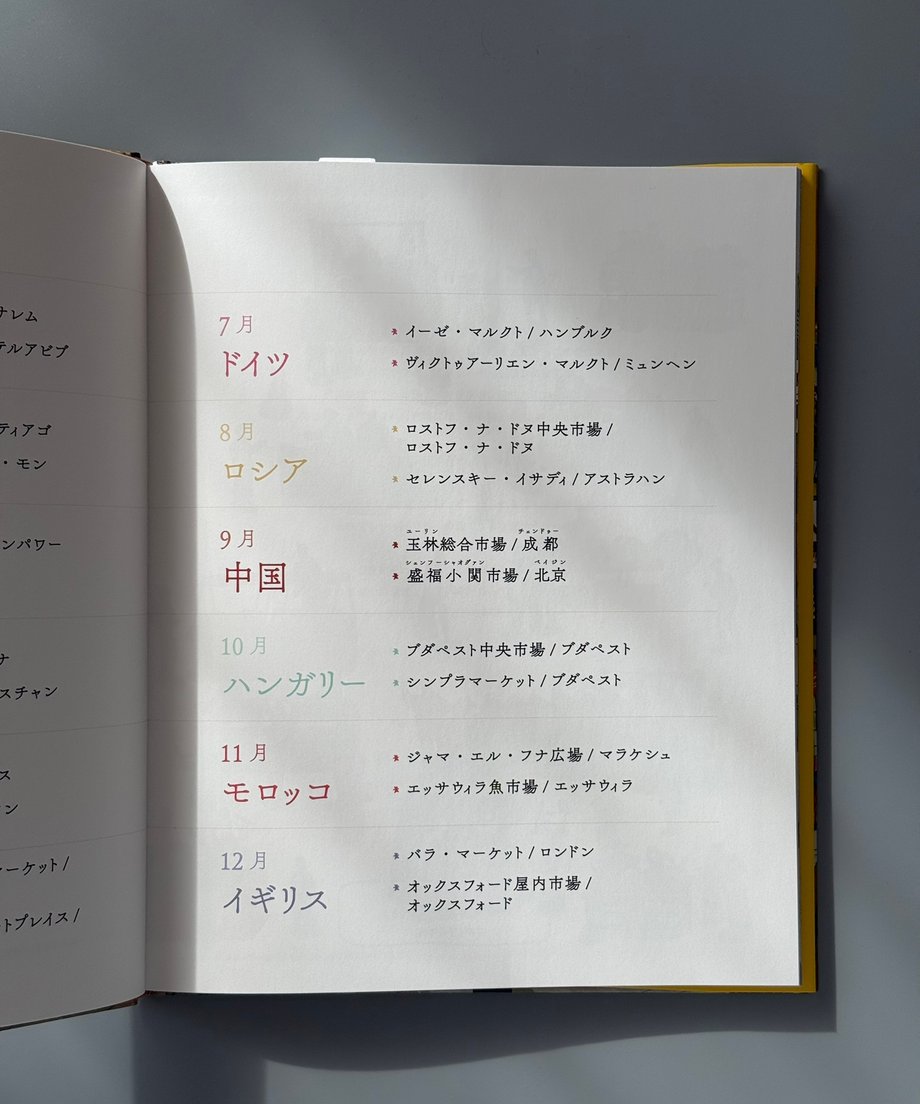 ナレム
テルアビブ
ティアゴ
・モン
ンパワー
ナ
スチャン
ス
ン
ーケット /
トプレイス /
7月
ドイツ
イーゼ・マルクト / ハンブルク
ヴィクトゥアーリエン・マルクト / ミュンヘン
8月
ロシア
ロストフ・ナ・ドヌ中央市場 /
ロストフ・ナ・ドヌ
セレンスキー・イサディ / アストラハン
9月
中国
ユーリン チェンドゥー
玉林総合市場 / 成都
シェンフーシャオグァン ベイジン
盛福小関市場 / 北京
10月
ハンガリー
ブダペスト中央市場 / ブダペスト
シンプラマーケット / ブダペスト
11月
モロッコ
ジャマ・エル・フナ広場 / マラケシュ
エッサウィラ魚市場 / エッサウィラ
12月
イギリス
バラ・マーケット / ロンドン
オックスフォード屋内市場 /
オックスフォード